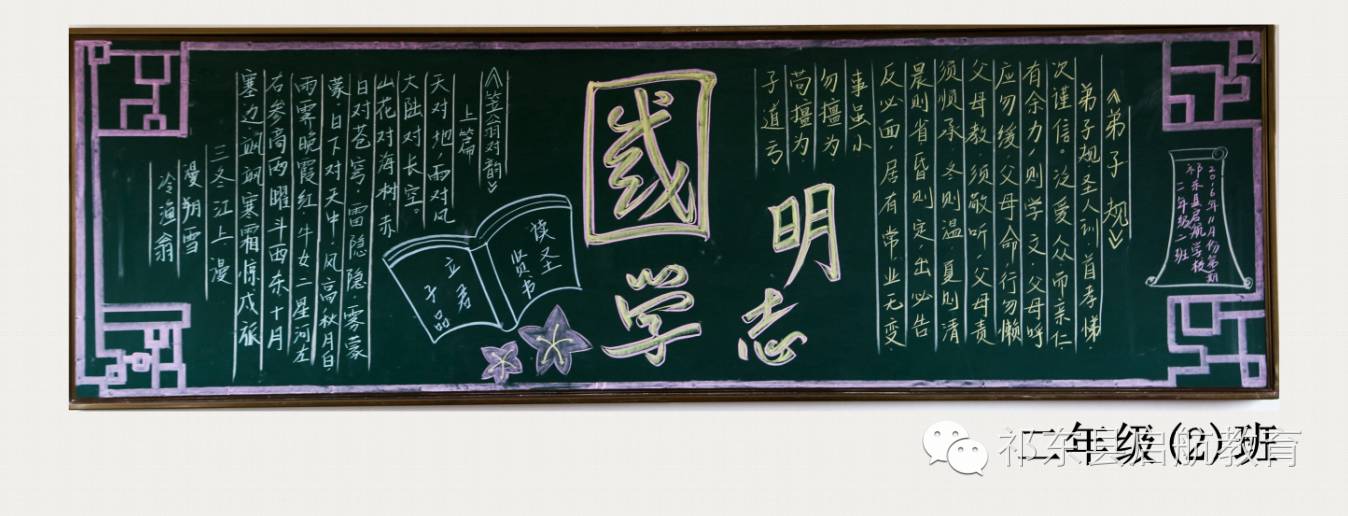 《弟子规》
弟子规圣人训·首孝悌·
次谨信。泛爱众而亲仁
有余力,则学文·父母呼
应勿缓·父母命行勿懒
父母教·须敬听·父母责
须顺承·冬则温·夏则清
晨则省昏则定·出必告
反必面·居有常业无变·
事虽小
勿擅为
苟擅为
子道亏
國学
明志
读圣
贤书
立君
子品
《笠翁对韵》
上篇
天对地·雨对风
大陆对长空。
山花对海树·赤
日对苍穹·雷隐隐·雾蒙
蒙·日下对天中·风高秋月白
雨霁晚霞红·牛女二星河左
右参商两曜斗西东十月
塞边飒飒寒霜惊戍旅
三冬江上·漫
漫朔雪
冷渔翁
2016年11月份第期
祁东县启航学校
二年级二班
二年级(2)班
祁东县启航教育